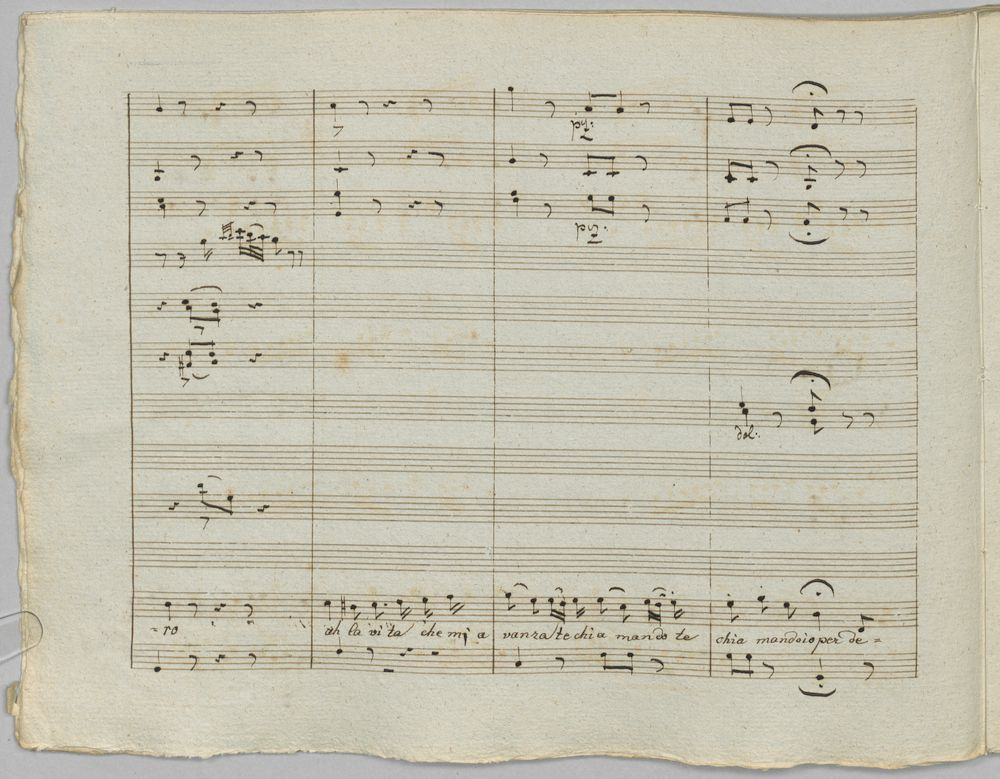 dol:
=ro ah la vita che mi a vanza te chi a mando te chia mandoio per de=